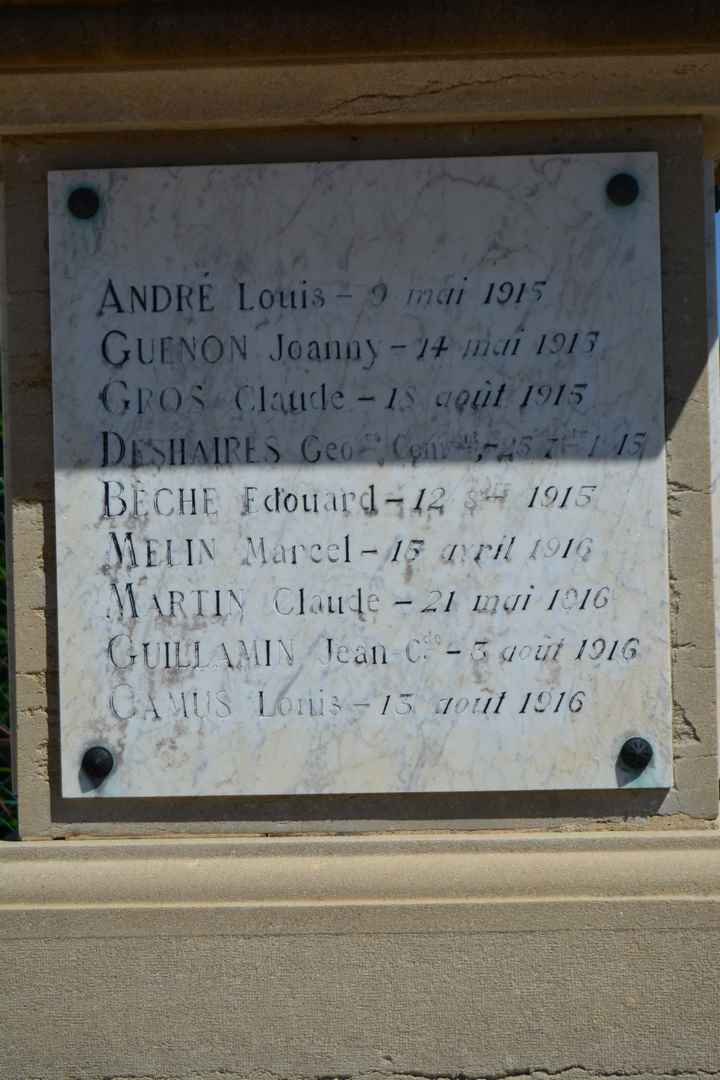 ANDRÉ Louis – 9 mai 1915
GUENON Joanny – 14 mai 1915
GROS Claude – 18 août 1915
DESHAIRES Geo – 25 7bre 1915
BÈCHE Edouard – 12 1915
MELIN Marcel – 15 avril 1916
MARTIN Claude – 21 mai 1916
GUILLAMIN Jean-Cde – 3 août 1916
CAMUS Louis – 13 août 1916